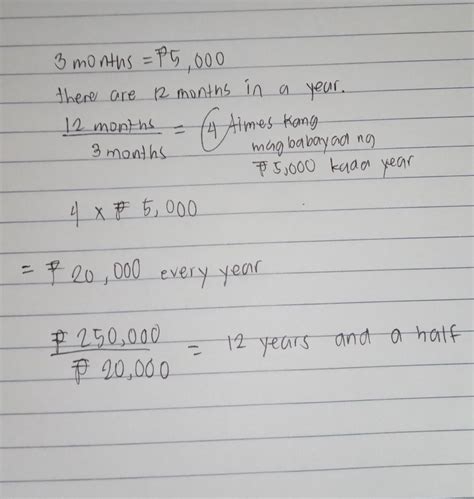 3 months = ₱5,000
there are 12 months in a year.
12 months
3 months
= 4 times kang
magbabayad ng
₱5,000 kada year
4 x ₱ 5,000
= ₱ 20,000 every year
₱ 250,000
₱ 20,000
= 12 years and a half